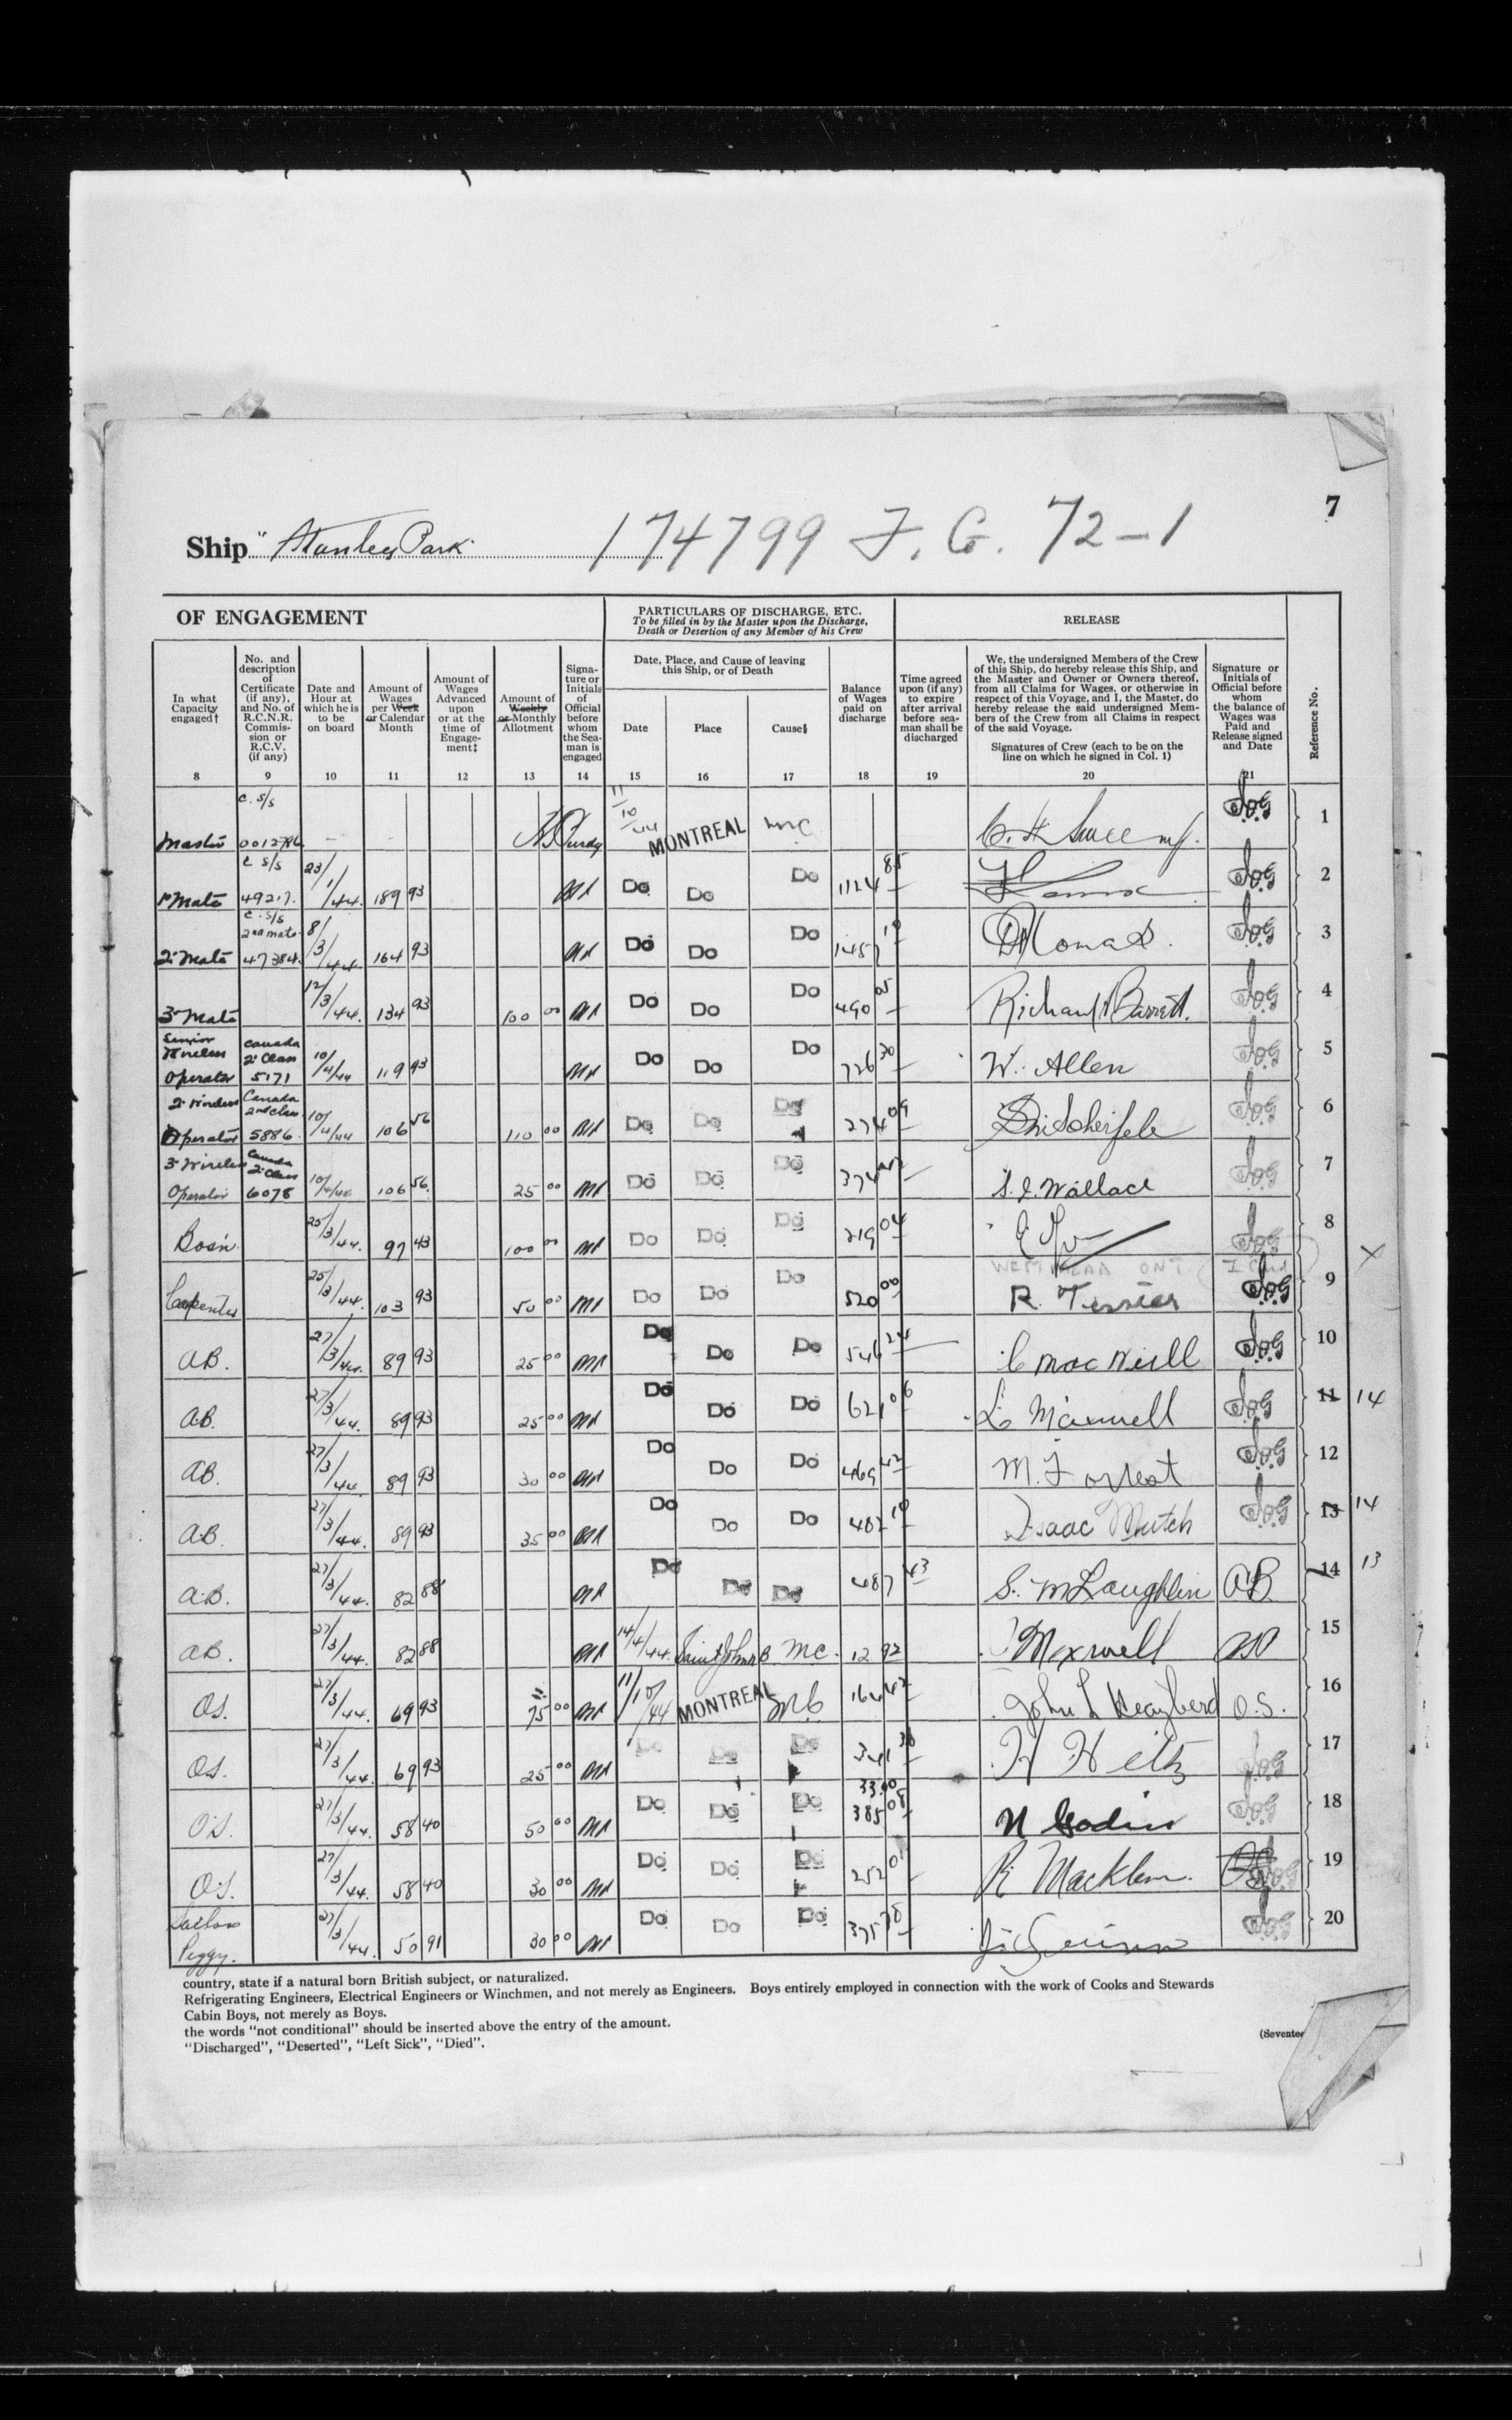 7
Ship " Stanley Park 174799 F. G. 72-1
OF ENGAGEMENT
PARTICULARS OF DISCHARGE, ETC.
To be filled in by the Master upon the Discharge,
Death or Desertion of any Member of his Crew
RELEASE
In what
Capacity
engaged†
8
No. and
description
of
Certificate
(if any),
and No. of
R.C.N.R.
Commis-
sion or
R.C.V.
(if any)
9
Date and
Hour at
which he is
to be
on board
10
Amount of
Wages
per Week
or Calendar
Month
11
Amount of
Wages
Advanced
upon
or at the
time of
Engage-
ment‡
12
Amount of
Weekly
or Monthly
Allotment
13
Signa-
ture or
Initials
of
Official
before
whom
the Sea-
man is
engaged
14
Date, Place, and Cause of leaving
this Ship, or of Death
Date
15
Place
16
Cause§
17
Balance
of Wages
paid on
discharge
18
Time agreed
upon (if any)
to expire
after arrival
before sea-
man shall be
discharged
19
We, the undersigned Members of the Crew
of this Ship, do hereby release this Ship, and
the Master and Owner or Owners thereof,
from all Claims for Wages, or otherwise in
respect of this Voyage, and I, the Master, do
hereby release the said undersigned Mem-
bers of the Crew from all Claims in respect
of the said Voyage.
Signatures of Crew (each to be on the
line on which he signed in Col. 1)
20
Signature or
Initials of
Official before
whom
the balance of
Wages was
Paid and
Release signed
and Date
21
Reference No.
Master C. S/S 0012786 — — 11/10/44 MONTREAL MC 1
1st Mate C S/S 49217. 23/1/44. 189 93 Do Do Do 1124 85 2
2d Mate C. S/S 2nd mate 47384. 8/3/44 164 93 Do Do Do 1457 10 3
3d Mate 12/3/44. 134 93 100 00 Do Do Do 490 05 Richard Barrett. 4
Senior Wireless Operator Canada 2d Class 5171 10/4/44 119 93 Do Do Do 726 30 W. Allen 5
2d Wireless Operator Canada 2nd Class 5886. 10/4/44 106 56 110 00 Do Do Do 274 09 6
3d Wireless Operator Canada 2d Class 6078 10/4/44 106 56. 25 00 Do Do Do 374 S. J. Wallace 7
Bosn. 25/3/44. 97 43 100 00 Do Do Do 219 04 8
Carpenter 25/3/44. 103 93 50 00 Do Do Do 520 00 R. Tessier 9
AB. 27/3/44. 89 93 25 00 Do Do Do 546 24 C MacNeill 10
AB. 27/3/44. 89 93 25 00 Do Do Do 621 06 L Maxwell 11 14
AB. 27/3/44. 89 93 30 00 Do Do Do 469 42 M. Forrest 12
AB. 27/3/44. 89 93 35 00 Do Do Do 402 10 Isaac Mutch 13 14
AB. 27/3/44. 82 88 Do Do Do 487 43 S. McLaughlin AB 14 13
AB. 27/3/44. 82 88 14/4/44. Saint John NB MC. 12 92 Maxwell 15
OS. 27/3/44. 69 93 75 00 11/10/44 MONTREAL MC 164 42 John L O.S. 16
OS. 27/3/44. 69 93 25 00 Do Do Do 341 38 H Hiltz 17
OS. 27/3/44. 58 40 50 00 Do Do Do 33.00 385 08 N Godin 18
OS. 27/3/44. 58 40 30 00 Do Do Do 252 01 R Macklem. OS 19
Sailors Peggy. 27/3/44. 50 91 30 00 Do Do Do 375 78 20
country, state if a natural born British subject, or naturalized.
Refrigerating Engineers, Electrical Engineers or Winchmen, and not merely as Engineers. Boys entirely employed in connection with the work of Cooks and Stewards
Cabin Boys, not merely as Boys.
the words "not conditional" should be inserted above the entry of the amount.
"Discharged", "Deserted", "Left Sick", "Died".